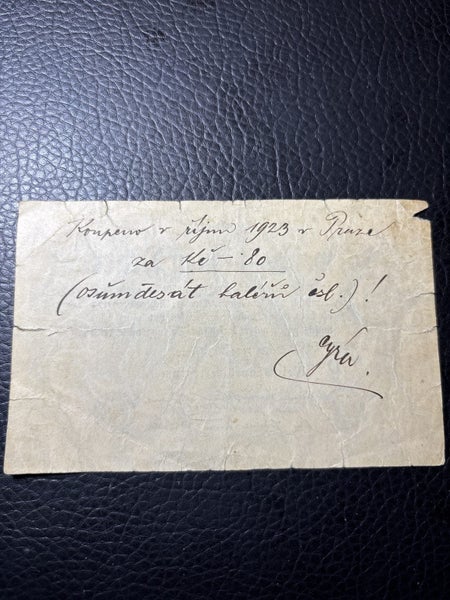 Koupeno v říjnu 1923 v Praze
za Kč –·80
(osumdesát haléřů čsl.) !